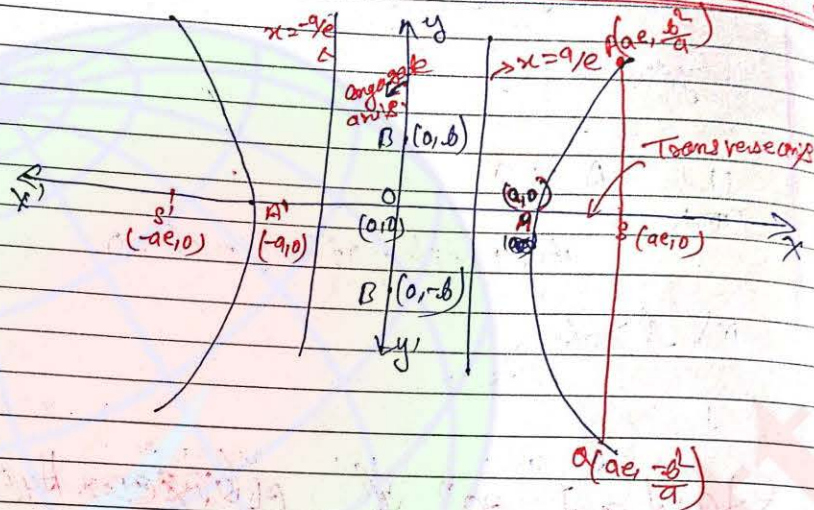 x=-a/e
y
P(ae, b²/a)
x=a/e
conjugate
axis
B (0,b)
Transverse axis
X'
S'
(-ae,0)
A'
(-a,0)
O
(0,0)
(a,0)
A
S (ae,0)
X
B (0,-b)
y'
Q(ae, -b²/a)